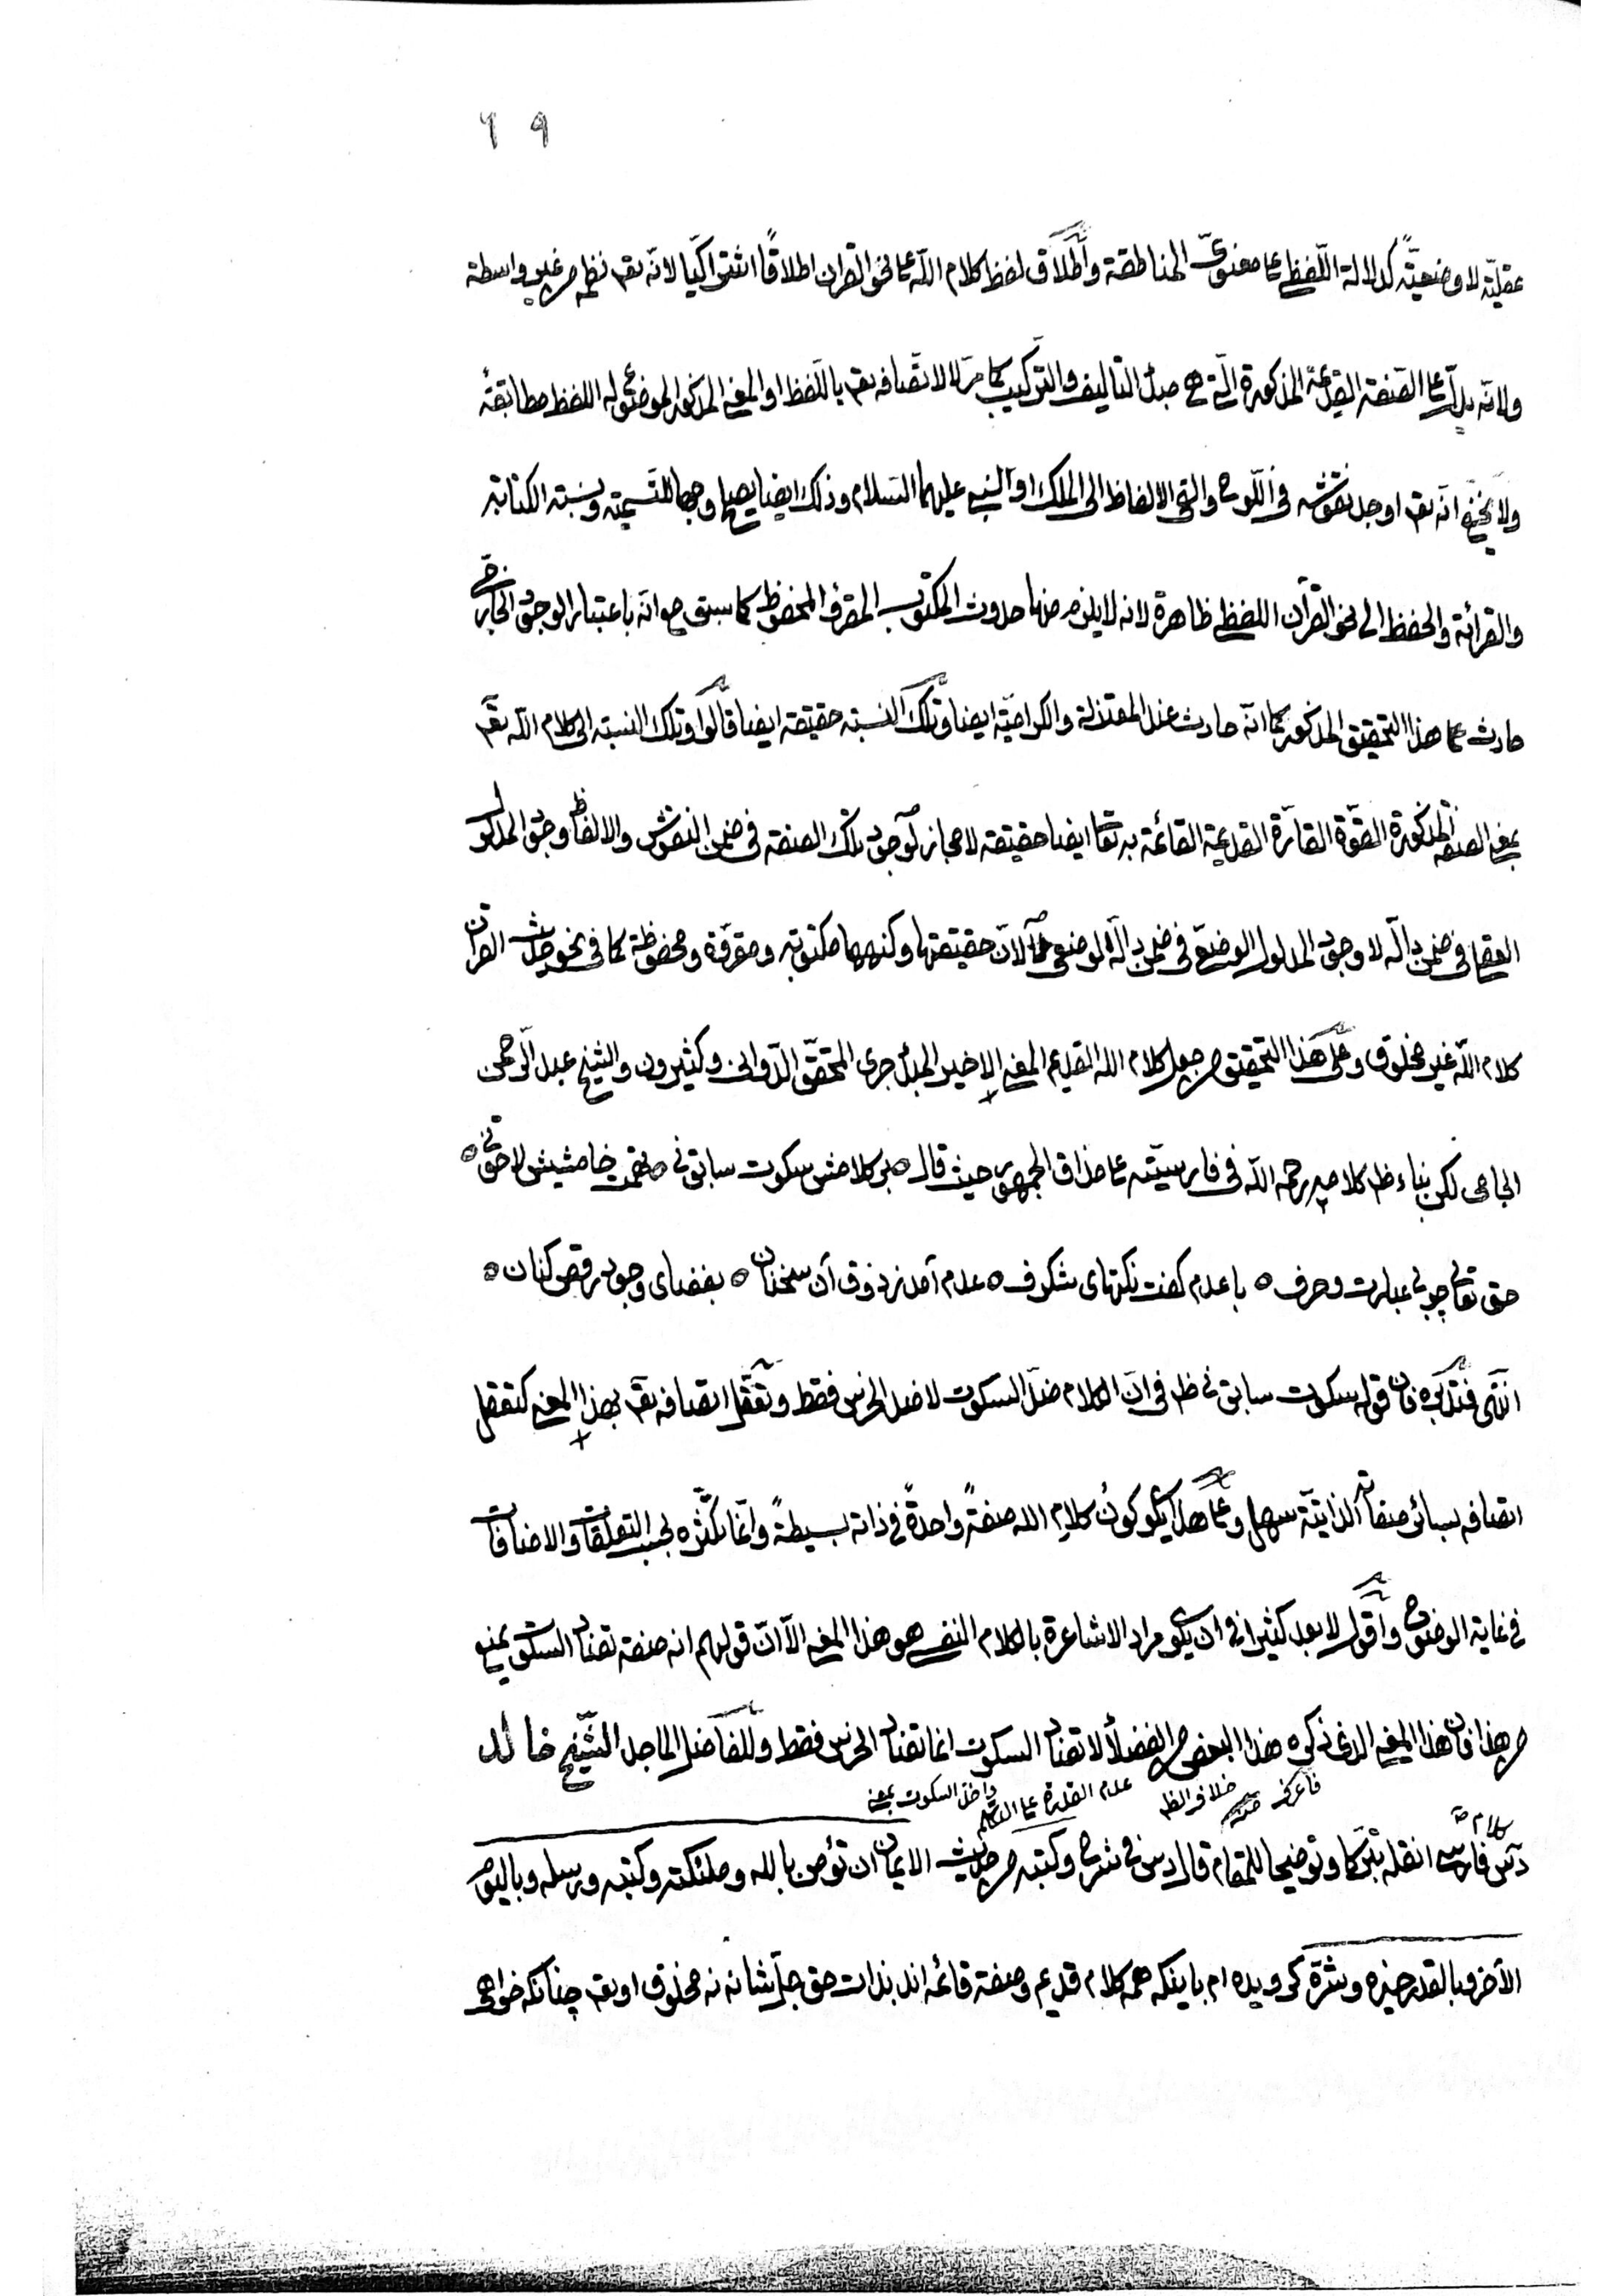 ٦٩
عقليّة لا وضعيّة كدلالة اللّفظ على معنىً المناطقة وأطلاق لفظ كلام الله على نحو القران اطلاقًا اشتراكيا لانّه تعم نظمه من غير واسطة
ولانّه يدلّ على الصّفة القديمة المذكورة الّتي هي مبدأ التأليف والتّركيب كما مرّ لا لاتّصافه تعم باللّفظ او المعنى المذكور الموضوع له اللفظ مطابقةً
ولا يخفى انّه تعم اوجد نقوشه في اللّوح والقى الالفاظ الى الملك او النبي عليهما السّلام وذلك ايضا يصلح وجها للتّسمية ونسبة الكتابة
والقرائة والحفظ الى نحو القرآن اللفظي ظاهرة لانه لا يلزم منها حدوث المكتوب المقرؤ المحفوظ كما سبق مع انّه باعتبار الوجود الخارجي
حادث على هذا التحقيق المذكور كما انّه حادث عند المعتزلة والكرامية ايضا وتلك النسبة حقيقة ايضا قالوا وتلك النسبة الى كلام الله تعم
بمعنى الصفة المذكورة القوّة القارّة القديمة القائمة به تعا ايضا حقيقة لا مجاز لوجود تلك الصفة في ضمن النقوش والالفاظ وجود المدلول
العقلي في ضمن دالّه لا وجود المدلول الوضعي في ضمن دالّه الوضعي لا لانّ حقيقتها وكنهها مكتوبة ومقروّة ومحفوظة كما في نحو حديث القران
كلام الله غير مخلوق وعلى هذا التحقيق من جعل كلام الله القديم المعنى الاخير المبدأ جرى المحقّق الدّواني وكثيرون والشيخ عبد الرّحمن
الجامي لكن بناء ظ كلامه رحمه الله في فارسيّته على مذاق الجمهور حيث قال ه بر كلامش سكوت سابق نى ه نقمت خامشيش لاحق نى ه
حق تعالى چو بى عبارت وحرف ه با عدم كفت نكتهاى شكرف ه عدم آمد ز ذوق آن سخنان ه بفضاى وجود رقص كنان ه
انتهى فتدبّره فان قوله سكوت سابق نى ظ في انّ الكلام ضدّ السكوت لا ضد الخرس فقط وتعقّل اتصافه تعم بهذا المعنى كتعقل
اتصافه بسائر صفاته الذاتيّة سهل وعلى هذا يكو كونُ كلامِ الله صفةً واحدةً في ذاته بسيطةً وانما تكثّره بحسب التعلقات والاضافات
في غاية الوضوح وأقول لا بعد كثيرا في ان يكو مراد الاشاعرة بالكلام النفسي هو هذا المعنى الّا انّ قولهم انه صفة تضاد السكوت يمنع
من هذا فان هذا المعنى الذي ذكره هذا البعض من الفضلاْ لا تضاد السكوت انما تضاد الخرس فقط وللفاضل الماجد الشّيخ خالد
فاعرف منه خلاف الظ عدم القدرة على التكلم واخذ السكوت بمعنى
كلام
دس فارسي انقله تبركا وتوضيحا للمقام قال دس في شرح وكتبه من حديث الايمان ان تؤمن بالله وملئكته وكتبه ورسله وباليوم
الآخر وبالقدر خيره وشرّه كرويده ام باينكه همه كلام قديم وصفة قائمه اند بذات حق جلّ شانه نه مخلوق او تعم چنانكه خواهى